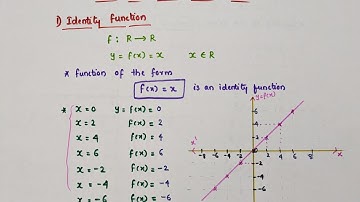 1) Identity function
f : R → R
y = f(x) = x x ∈ R
* function of the form
f(x) = x is an identity function
* x = 0 y = f(x) = 0
x = 2 f(x) = 2
x = 4 f(x) = 4
x = 6 f(x) = 6
x = -2 f(x) = -2
x = -4 f(x) = -4
x = -6 f(x) = -6
y=f(x)
x' -8 -6 -4 -2 2 4 6 8 x